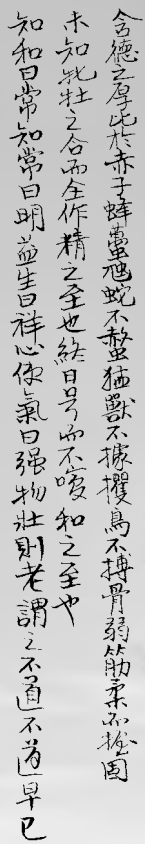 含德之厚比於赤子蜂蠆虺蛇不螫猛獸不據攫鳥不搏骨弱筋柔而握固
未知牝牡之合而全作精之至也終日号而不嗄和之至也
知和曰常知常曰明益生曰祥心使氣曰强物壯則老謂之不道不道早已